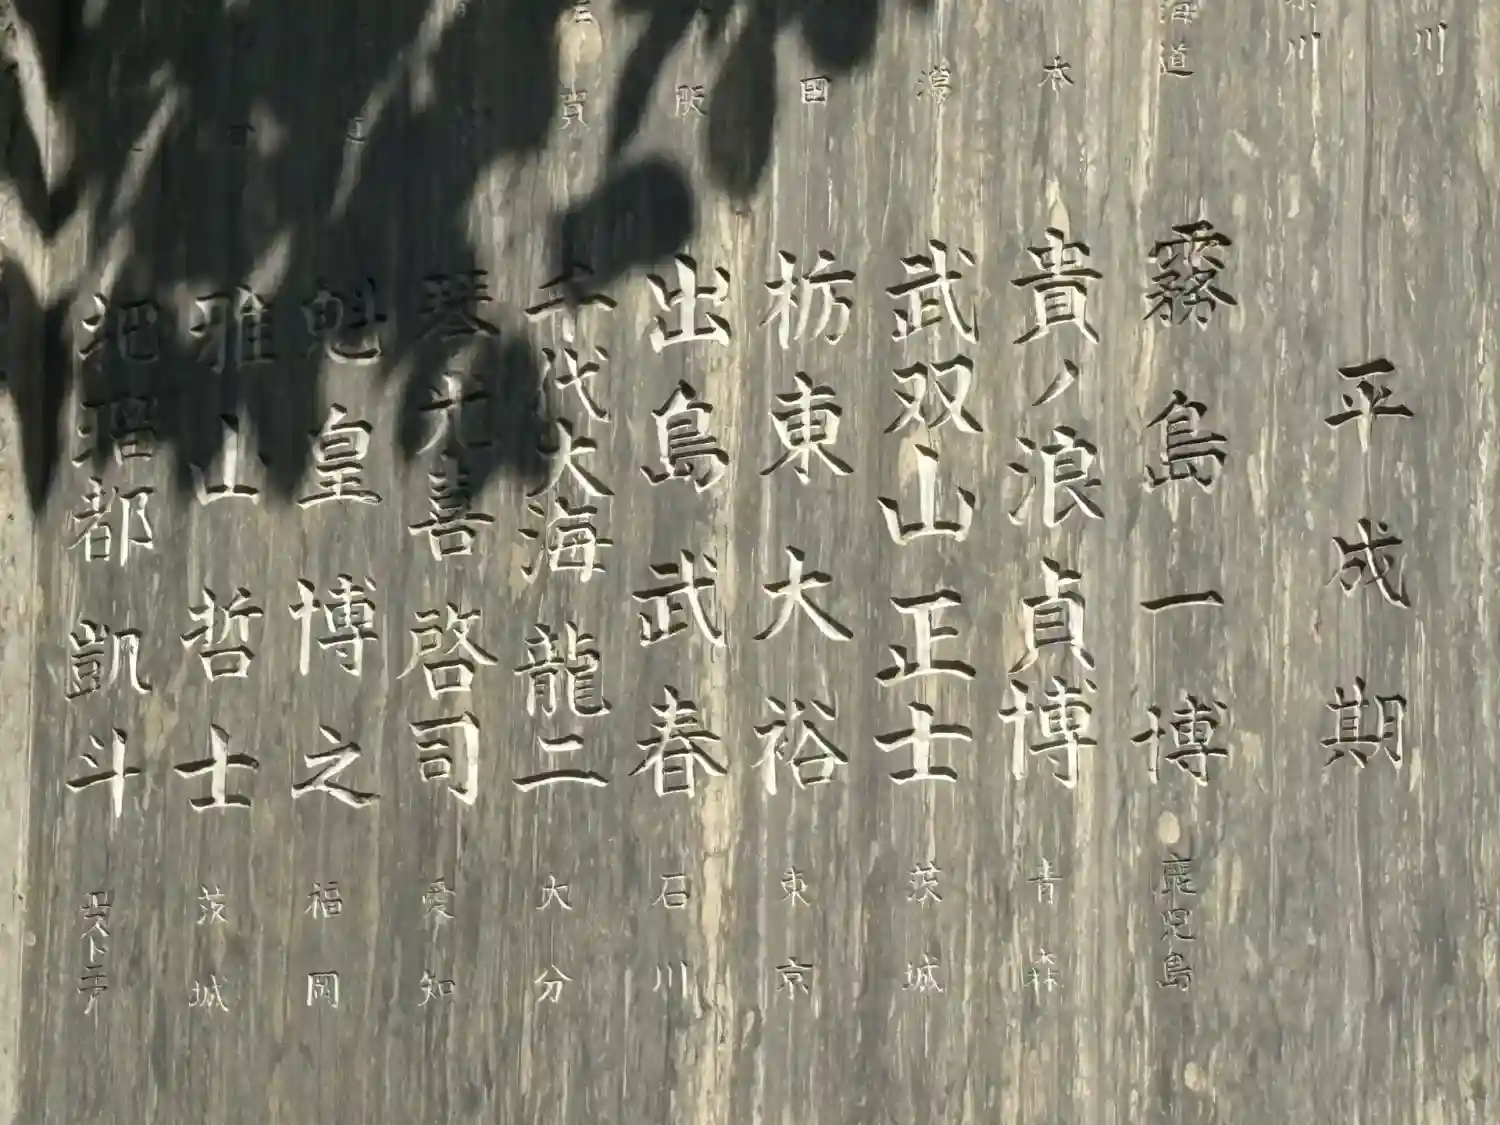 川
川
海道
本
潟
田
阪
賀
平成期
霧島一博 鹿児島
貴ノ浪貞博 青森
武双山正士 茨城
栃東大裕 東京
出島武春 石川
千代大海龍二 大分
琴光喜啓司 愛知
魁皇博之 福岡
雅山哲士 茨城
把瑠都凱斗 エストニア